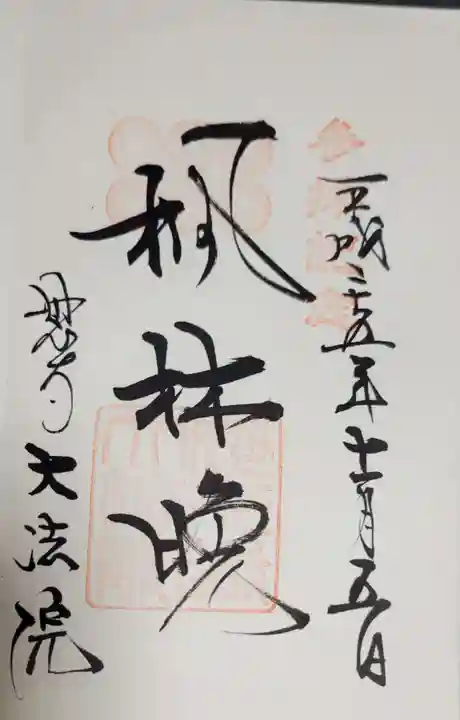 平成二十五年十一月五日
楓林晩
妙心寺 大法院